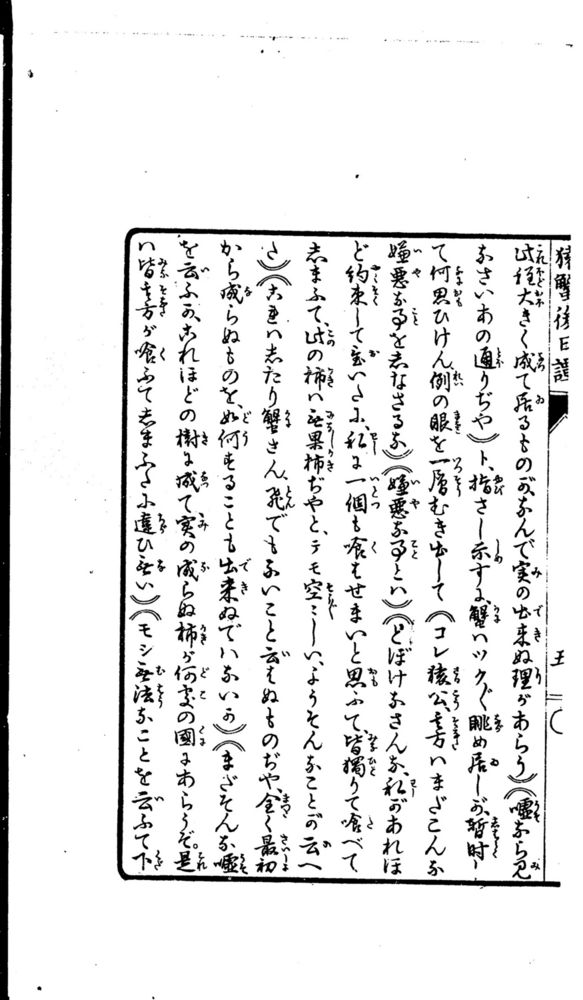 猿蟹後日譚
五
此程大きく成て居るものが、なんで実の出来ぬ理があらう)(嘘なら見
なさいあの通りぢや)ト、指さし示すに、蟹ハツク〲眺め居しが、暫时し
て何思ひけん、例の眼を一層むき出して(コレ猿公、其方ハまだこんな
嫌悪な事を志なさるな)(嫌悪な事とハ)(とぼけなさんな、私があれほ
ど約束して置いたに、私に一個も喰もせまいと思ふて、皆獨りて喰べて
志まふて、此の柿ハ無果柿ぢやと、テモ空〻しい、ようそんなことが云へ
た)(これハ志たり蟹さん、飛でもないこと云ぬものぢや、全く最初
から成らぬものを、如何することも出来ぬでハないか)(まだそんな嘘
を云ふか、これほどの樹に成て実の成らぬ柿が何処の國にあらうぞ。是
ハ皆其方が喰ふて志まふたに違ひ無い)(モシ無法なことを云ふて下